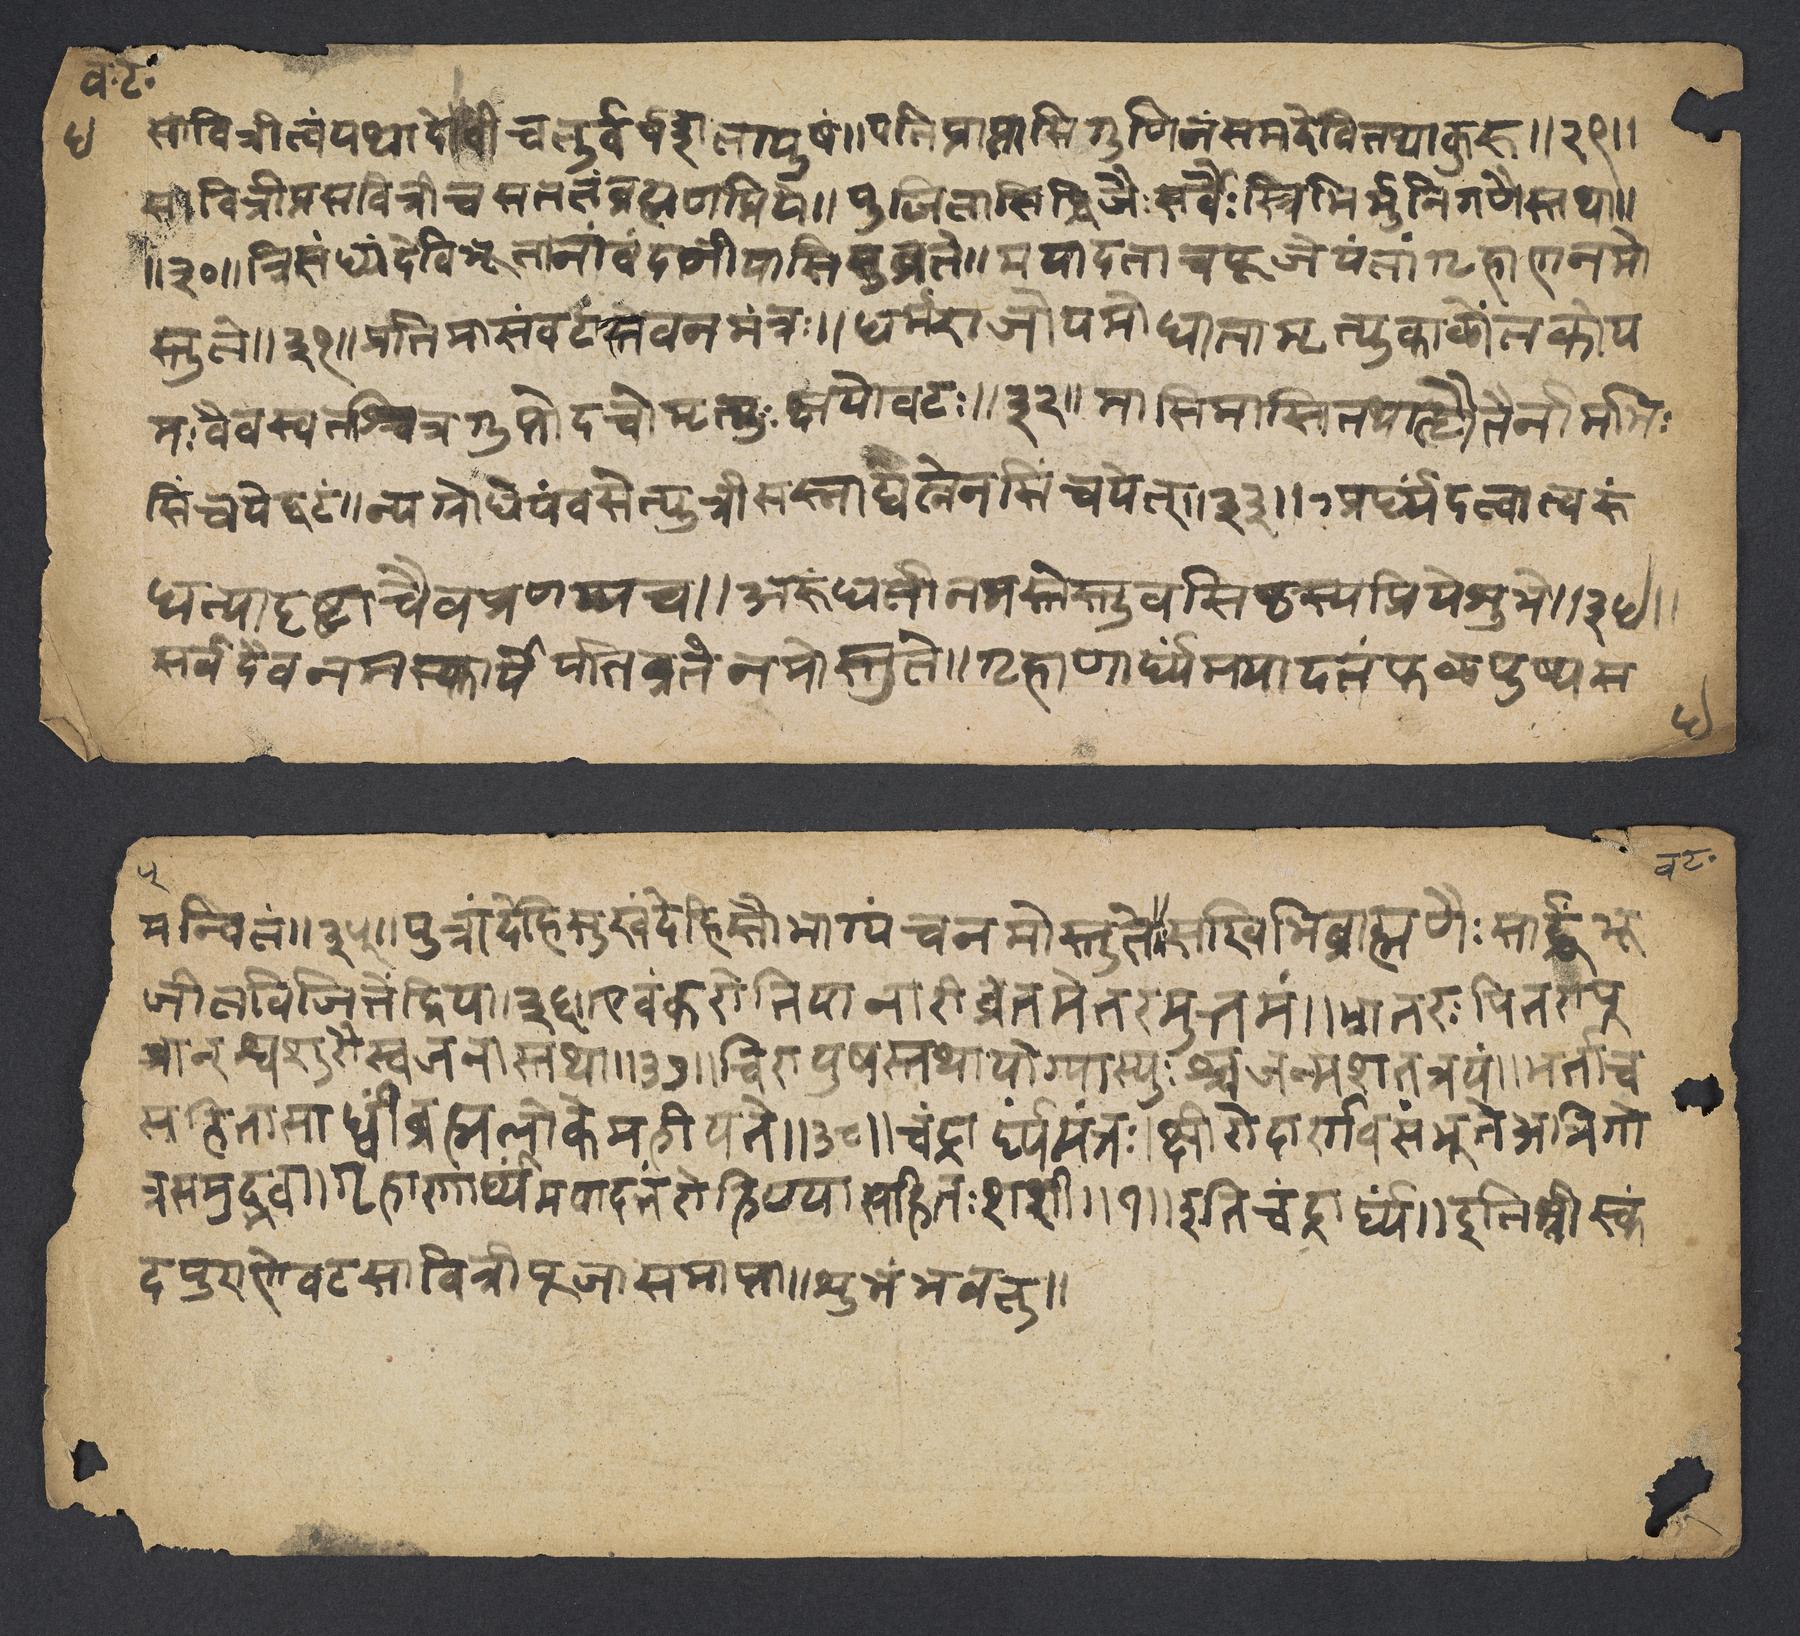 व॰ट॰
५
सावित्रीत्वंयथादेवीचतुर्वर्षशतायुषं॥पतिप्राप्तासिगुणिनंममदेवितथाकुरु॥२९॥
सावित्रीप्रसवित्रीचसततंब्रह्मणप्रिये॥पुजितासिद्विजैःसर्वैःस्त्रिभिर्मुनिगणैस्तथा॥
॥३०॥त्रिसंध्यंदेविभूतानांवंदनीयासिसुव्रते॥मयादत्ताचपूजेयंतांगृहाणनमो
स्तुते॥३१॥प्रतिमासंवटसेवनमंत्रः॥धर्मराजोयमोधातामृत्युकाळोंतकोय
मःवैवस्वतश्चित्रगुप्तोदध्नोमृत्युःक्षयोवटः॥३२॥मासिमासितथा नामभिः
सिंचयेद्वटं॥न्यग्रोधेयंवसेत्पुत्रीसस्नाद्यत्नेनसिंचयेत्॥३३॥ दत्वात्वरुं
धत्यादृष्टाचैवप्रणम्यच॥अरुंधतीनमस्तेस्तुवसिष्ठस्यप्रियेशुभे॥३४॥
सर्वदेवनमस्कार्येपतिव्रतेनमोस्तुते॥गृहाणार्घ्यंमयादत्तंफळपुष्पस
५
५
वट॰
मन्वितं॥३५॥पुत्रांदेहिसुखंदेहिसौभाग्यंचनमोस्तुते॥सखिभिब्राह्मणैःसार्द्धंभुं
जीतविजितेंद्रिया॥३६॥एवंकरोतियानारीव्रतमेतदमुत्तमं॥भ्रातरःपितरोपु
त्रानश्वशुरोस्वजनास्तथा॥३७॥चिरायुषस्तथायोग्यास्युःश्चजन्मशतत्रयं॥भर्ताच
सहितासाध्वींब्रह्मलोकेमहीयते॥३८॥चंद्रार्घ्यमंत्रः।क्षीरोदार्णवसंभुतेअत्रिगो
त्रसमुद्रवा।गृहाणार्घ्यंमयादत्तंरोहिण्यासहितःशशी॥१॥इतिचंद्रार्घ्यं॥इतिश्रीस्कं
दपुराणेवटसावित्रीपूजासमाप्ता॥शुभंभवतु॥